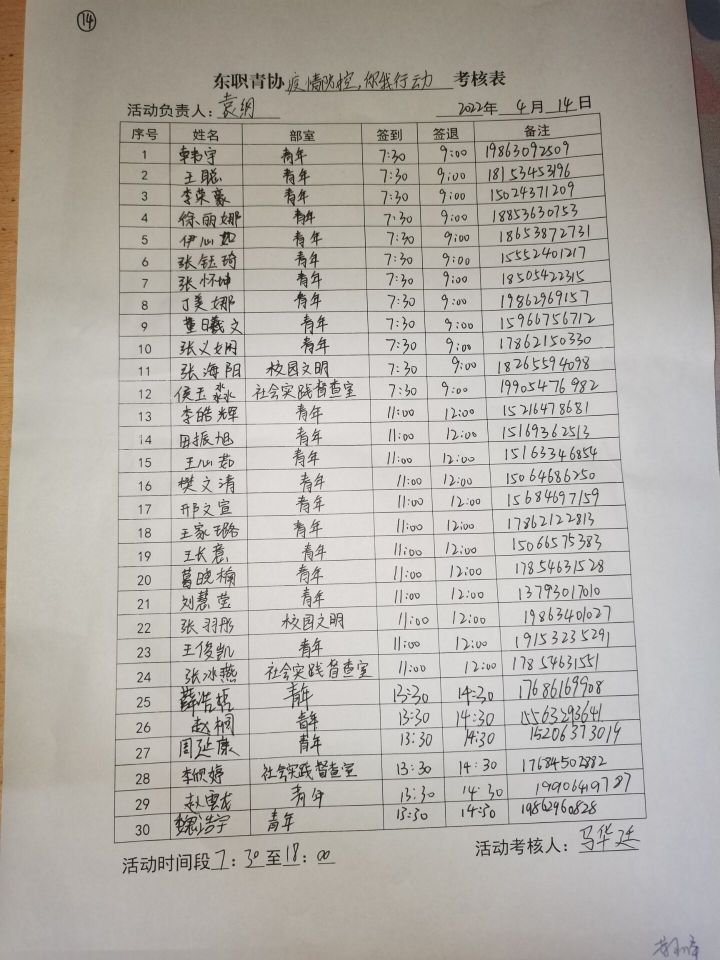 14
东职青协 疫情防控,你我行动 考核表
活动负责人: 袁纲 2022年 4月 14日
序号 姓名 部室 签到 签退 备注
1 韩宇 青年 7:30 9:00 19863092509
2 王聪 青年 7:30 9:00 18153453196
3 李荣豪 青年 7:30 9:00 15024371209
4 徐丽娜 青年 7:30 9:00 18853630753
5 伊心如 青年 7:30 9:00 18653872731
6 张钰琦 青年 7:30 9:00 15552401217
7 张怀坤 青年 7:30 9:00 18505422315
8 丁美娜 青年 7:30 9:00 19862969157
9 董曦文 青年 7:30 9:00 15966756712
10 张义娴 青年 7:30 9:00 17862150330
11 张海阳 校园文明 7:30 9:00 18265594098
12 侯玉淼 社会实践督查室 7:30 9:00 19905476982
13 李皓辉 青年 11:00 12:00 15216478681
14 田振旭 青年 11:00 12:00 15169362513
15 王心茹 青年 11:00 12:00 15163346854
16 樊文清 青年 11:00 12:00 15064686250
17 邢文宣 青年 11:00 12:00 15684697159
18 王家璐 青年 11:00 12:00 17862122813
19 王长意 青年 11:00 12:00 15066575383
20 葛晓楠 青年 11:00 12:00 17854631528
21 刘慧莹 青年 11:00 12:00 13793017010
22 张羽彤 校园文明 11:00 12:00 19863401027
23 王俊凯 青年 11:00 12:00 19153235291
24 张冰燕 社会实践督查室 11:00 12:00 17854631551
25 薛浩 青年 13:30 14:30 17686169908
26 赵桐 青年 13:30 14:30 15563293641
27 周延康 青年 13:30 14:30 15206373019
28 李欣婷 社会实践督查室 13:30 14:30 17684502882
29 赵云龙 青年 13:30 14:30 19906419787
30 魏浩宇 青年 13:30 14:30 19862960828
活动时间段 7:30至18:00 活动考核人: 马华廷